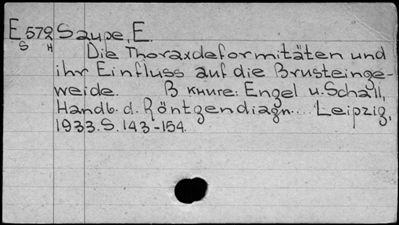 E 572 Saupe, E.
S H
Die Thoraxdeformitäten und
ihr Einfluss auf die Brusteinge-
weide. В книге: Engel u. Schall,
Handb. d. Röntgendiagn.... Leipzig,
1933. S. 143-154.